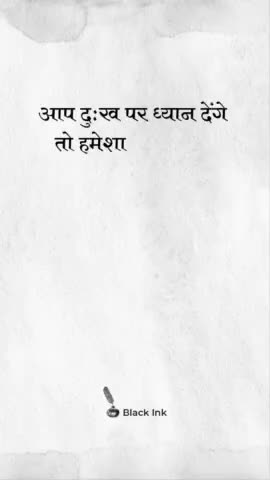 आप दुःख पर ध्यान देंगे
तो हमेशा
Black Ink